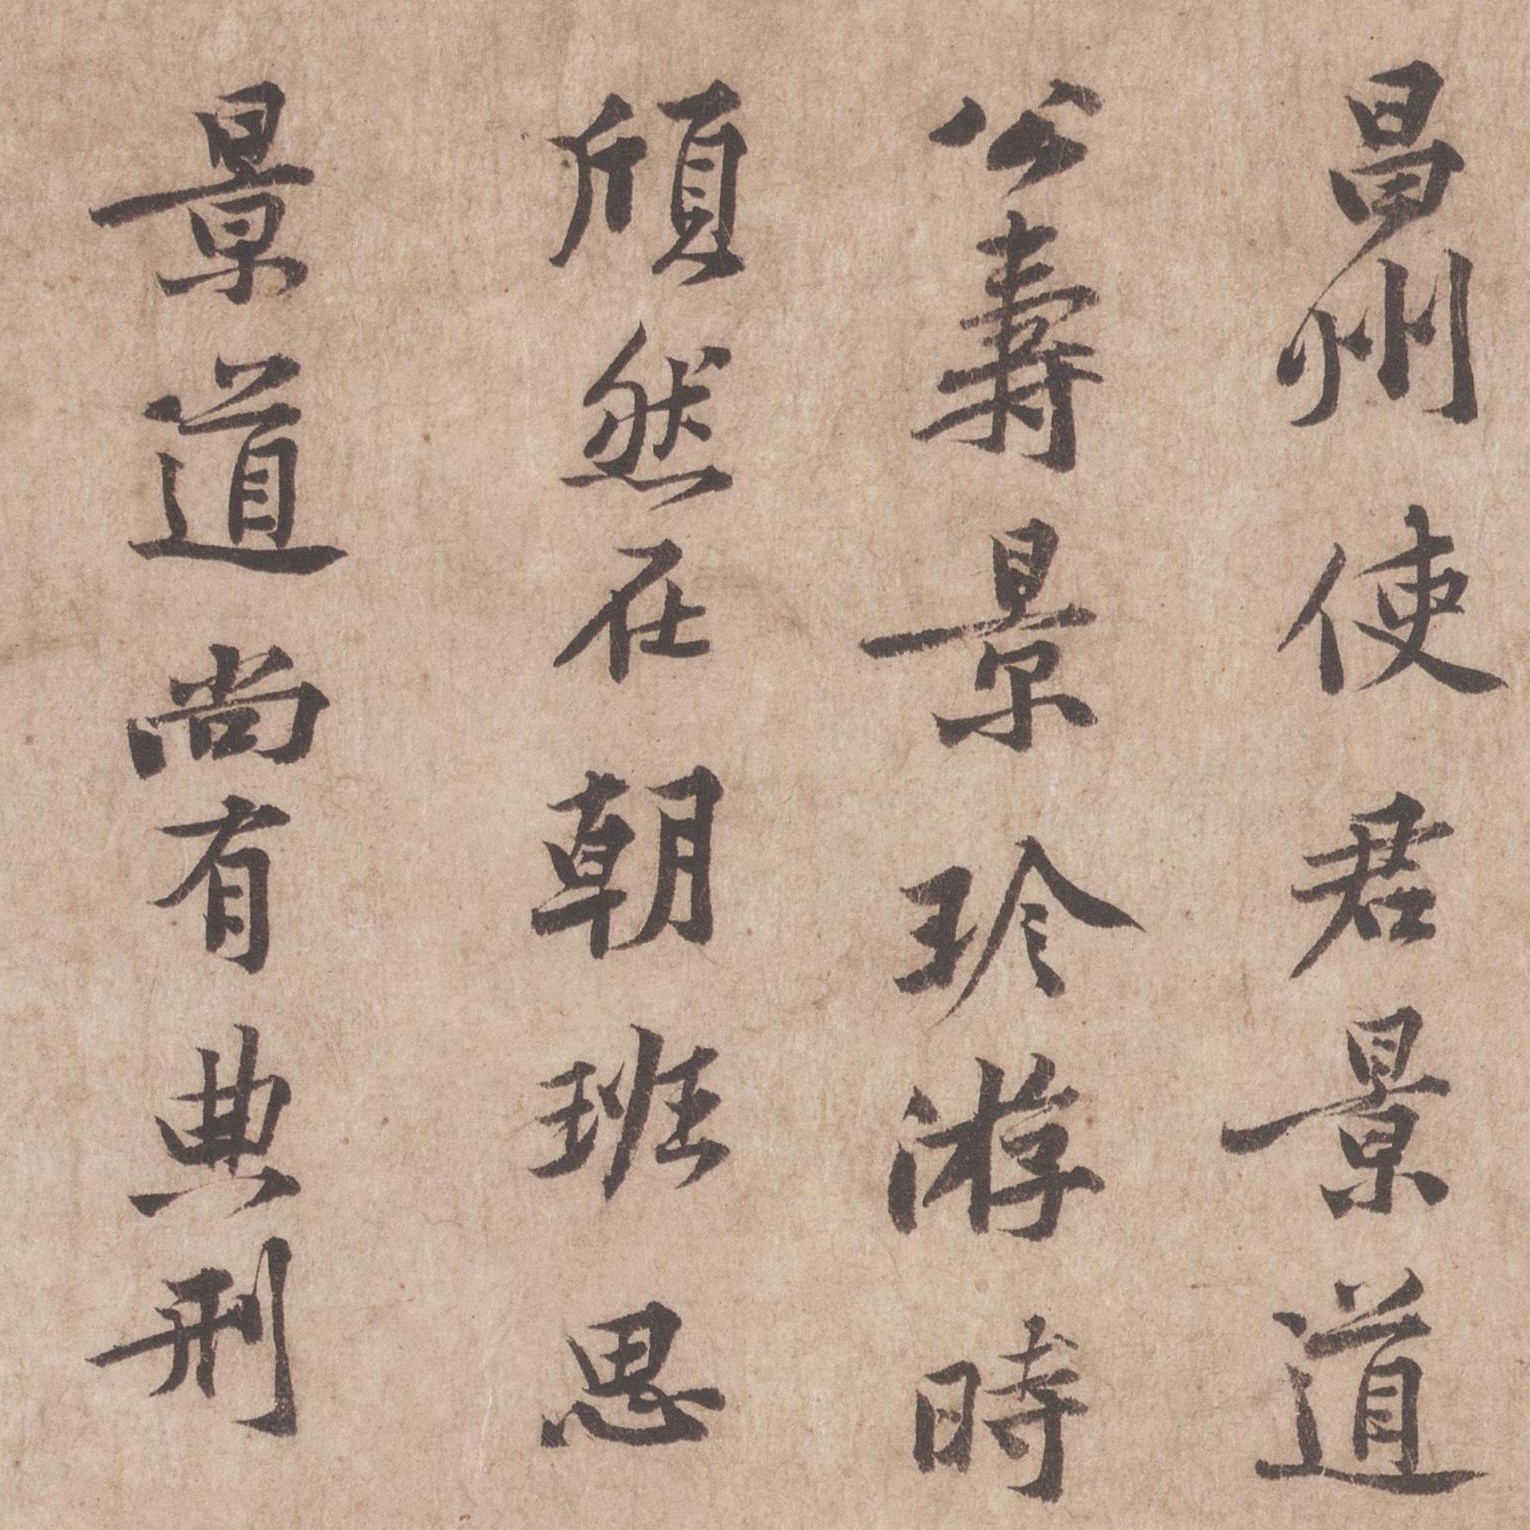 昌州使君景道
公壽景珍游時
頎然在朝班思
景道尚有典刑